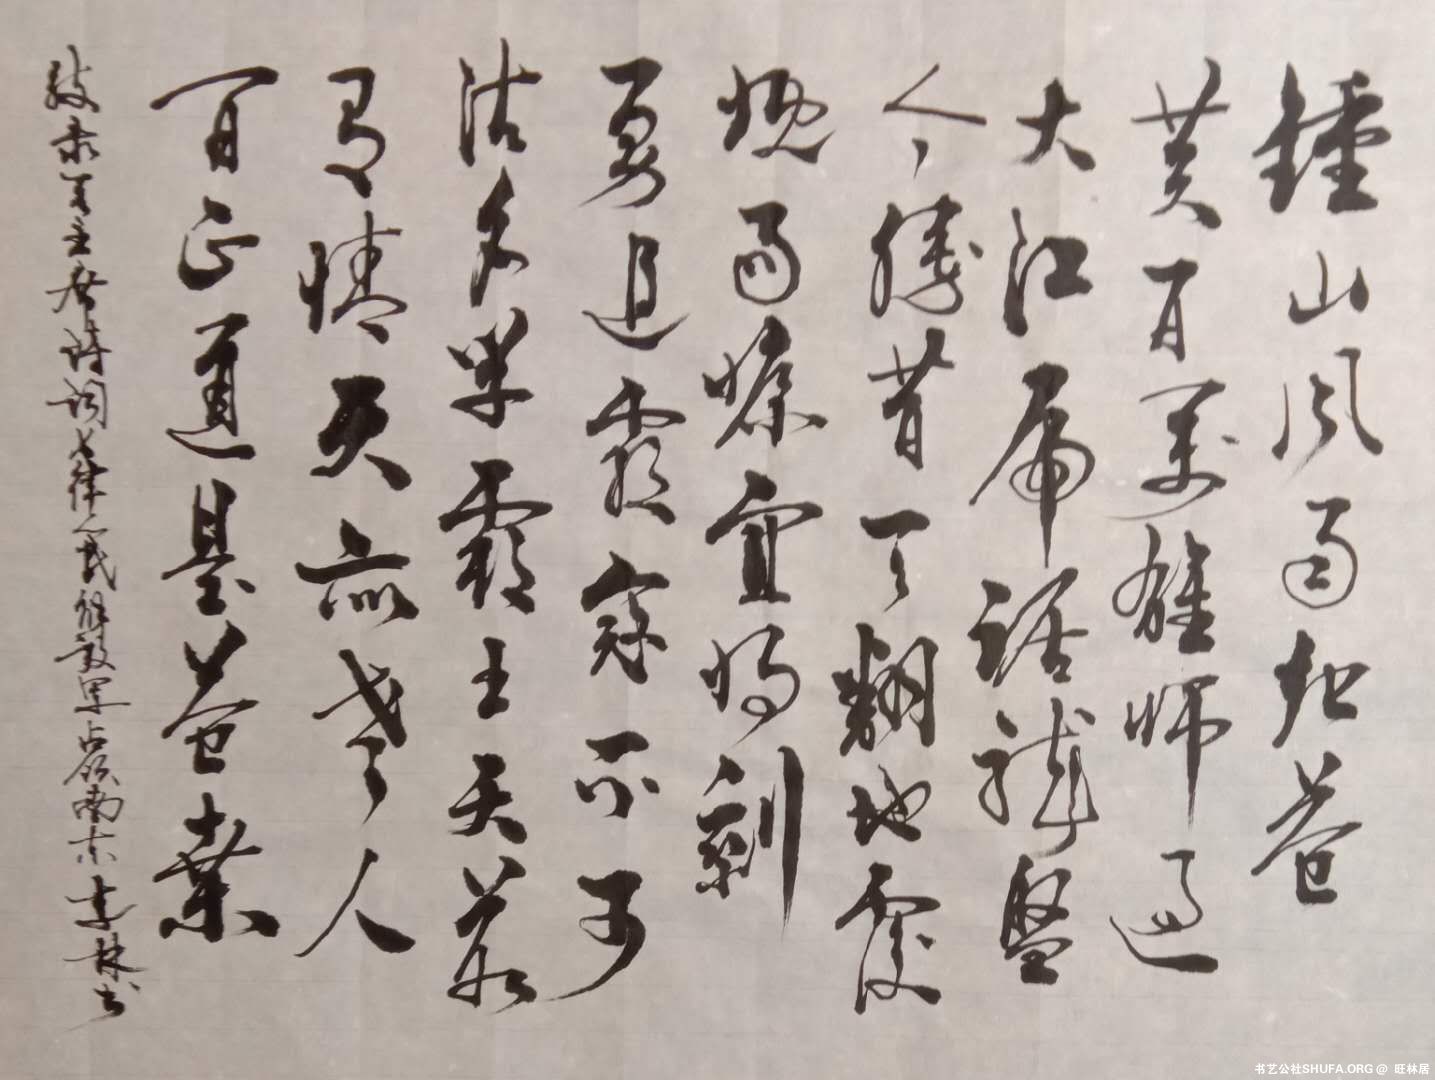 鍾山风雨起苍
黄百万雄师过
大江虎踞龍盤
今勝昔天翻地覆
慨而慷宜将剩
勇追窮寇不可
沽名学霸王天若
有情天亦老人
间正道是苍桑
敬录毛主席诗词七律人民解放军占领南京林书
书艺公社SHUFA.ORG @ 旺林居